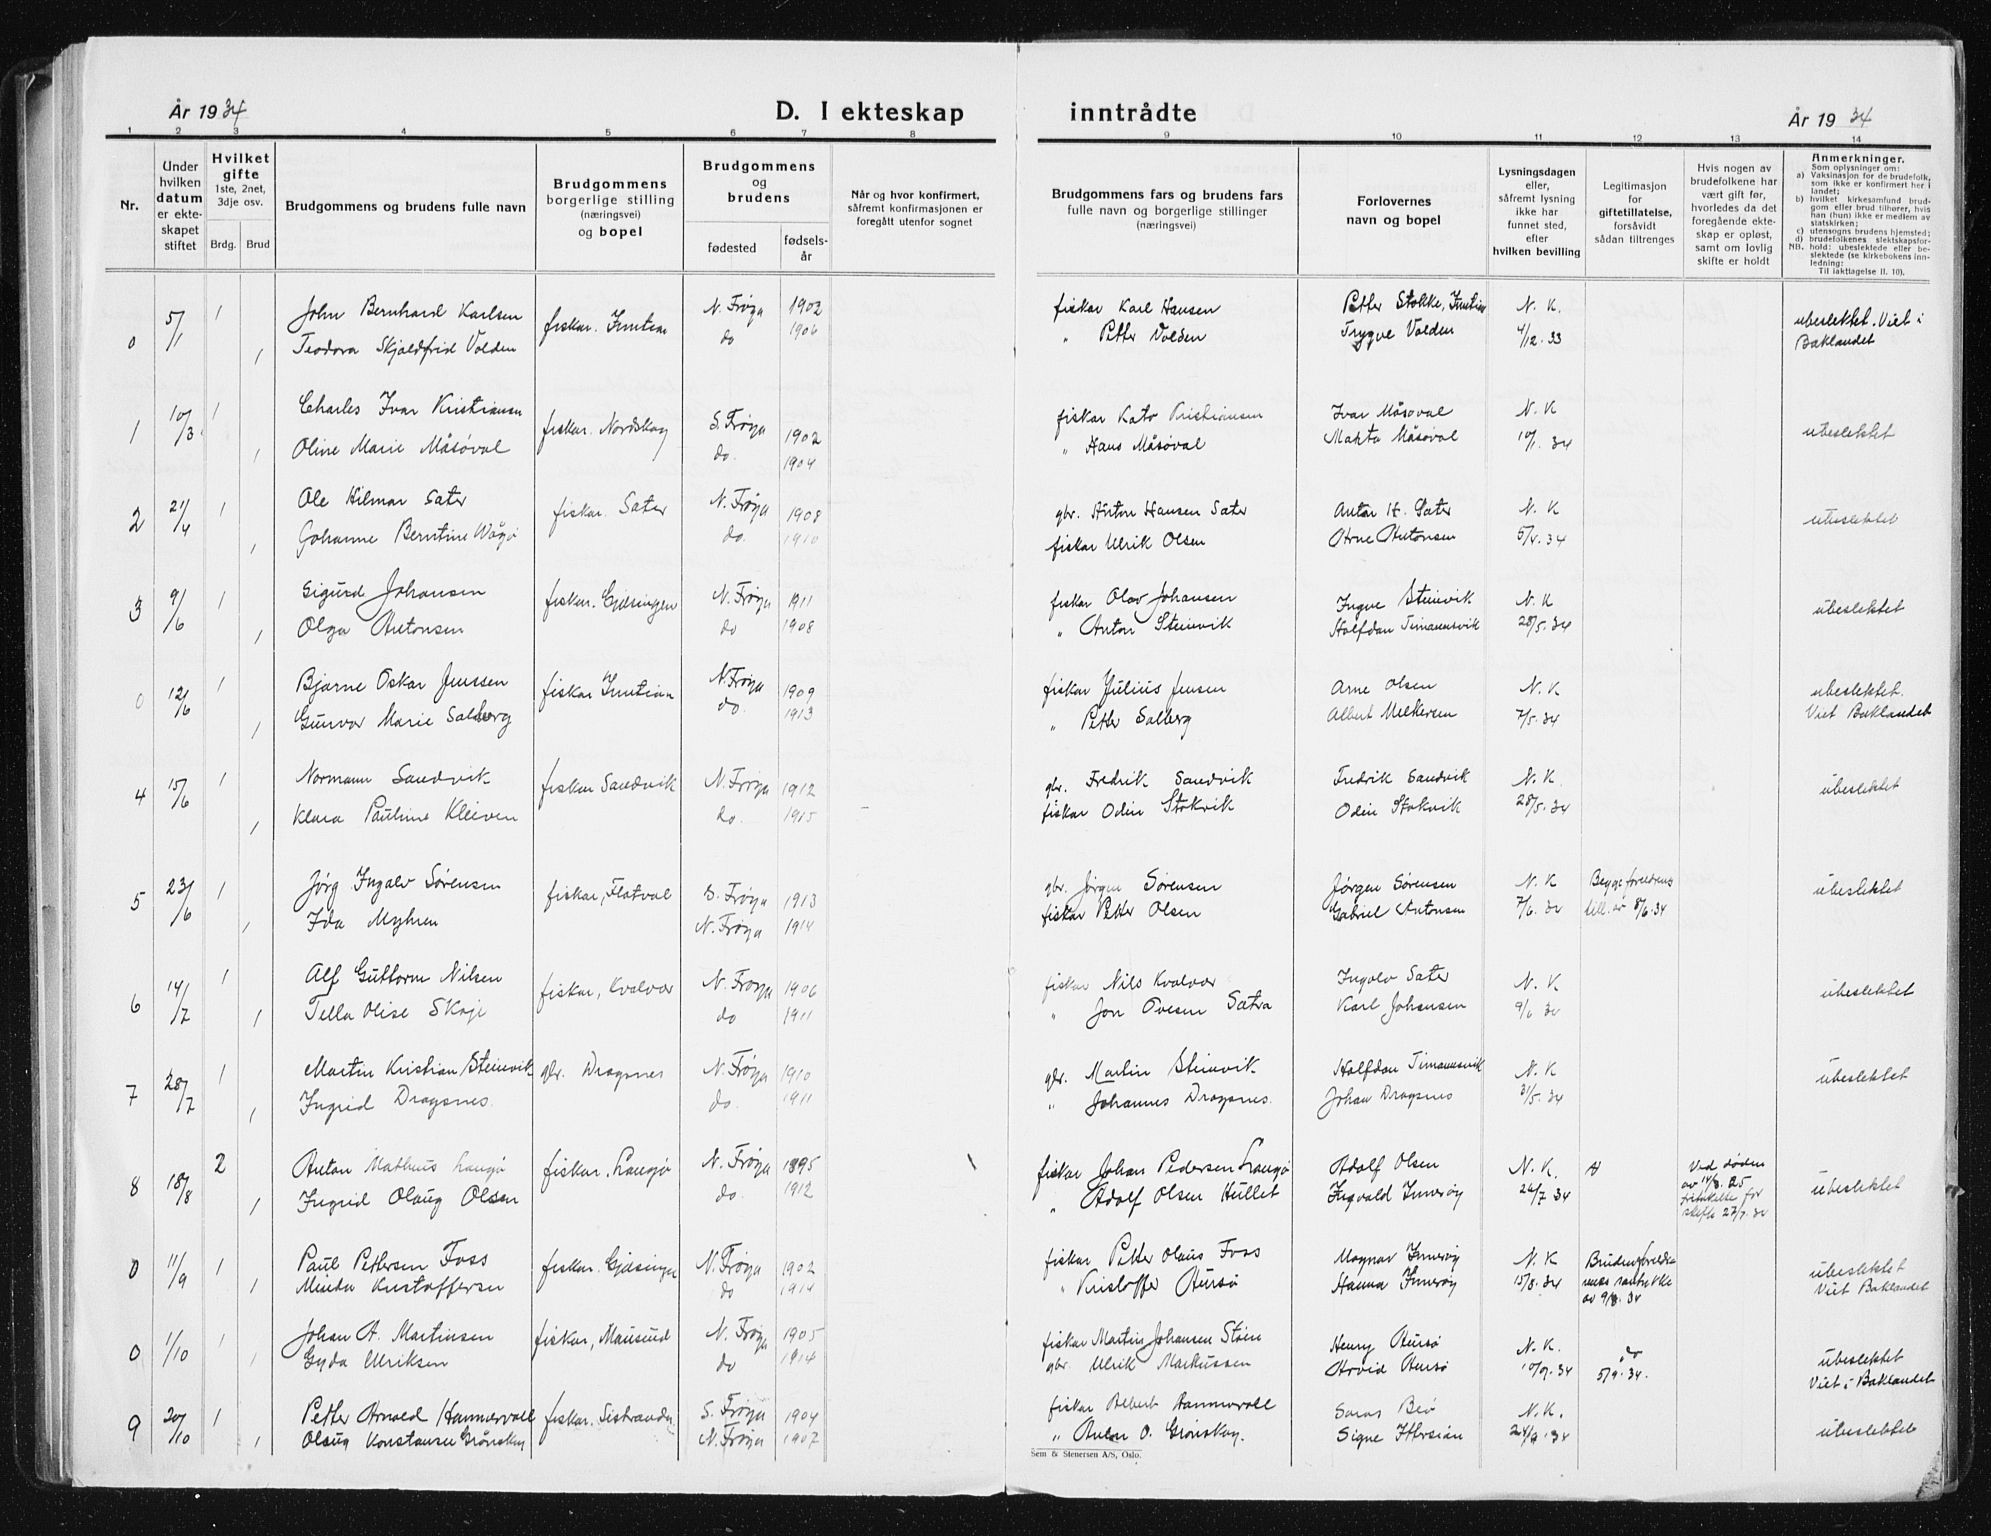 År 1934
D. I ekteskap inntrådte
År 1934
1 2 3 4 5 6 7 8 9 10 11 12 13 14
Nr.
Under hvilken datum er ekteskapet stiftet
Hvilket gifte 1ste, 2net, 3dje osv.
Brdg. Brud
Brudgommens og brudens fulle navn
Brudgommens borgerlige stilling (næringsvei) og bopel
Brudgommens og brudens
fødested
fødselsår
Når og hvor konfirmert, såfremt konfirmasjonen er foregått utenfor sognet
Brudgommens fars og brudens fars fulle navn og borgerlige stillinger (næringsvei)
Forlovernes navn og bopel
Lysningsdagen eller, såfremt lysning ikke har funnet sted, efter hvilken bevilling
Legitimasjon for giftetillatelse, forsåvidt sådan tiltrenges
Hvis nogen av brudefolkene har vært gift før, hvorledes da det foregående ekteskap er opløst, samt om lovlig skifte er holdt
Anmerkninger.
Som oplysninger om:
a) Vaksinasjon for de brudefolk, som ikke er konfirmert her i landet;
b) hvilket kirkesamfund brudgom eller brud tilhører, hvis han (hun) ikke er medlem av statskirken;
c) utensogns brudens hjemsted;
d) brudefolkenes slektskapsforhold: ubeslektede eller beslektede (se kirkebokens innledning:
NB.
Til iakttagelse II. 10).
0 5/1 1 John Bernhard Karlsen fiskar. Inntian N. Frøya 1902 fiskar Karl Hansen Petter Stokke, Inntian N. K. ubeslektet. Viet i
1 Teodora Skjaldfrid Volden do 1906 " Petter Volden Trygve Volden 4/12. 33 Baklandet
1 10/3 1 Charles Ivar Kristiansen fiskar. Nordskag S. Frøya 1902 fiskar Kato Kristiansen Ivar Måsøval N. K ubeslektet
1 Oline Marie Måsøval do. 1904 " Hans Måsøval Makta Måsøval 10/1. 34
2 21/4 1 Ole Hilmar Sater fiskar. Sater N. Frøya 1908 gbr. Anton Hansen Sater Anton H. Sater N. K ubeslektet
1 Johanne Berntine Vågø do. 1910 fiskar Ulrik Olsen Arne Antonsen 5/4. 34
3 9/6 1 Sigurd Johansen fiskar. Gjæsingen N. Frøya 1911 fiskar Olav Johansen Ingve Steinvik N. K ubeslektet
1 Olga Antonsen do 1908 " Anton Steinvik Halfdan Timannsvik 28/5. 34
0 12/6 1 Bjarne Oskar Jenssen fiskar Inntian N. Frøya 1909 fiskar Julius Jensen Arne Olsen N. K ubeslektet.
1 Gunvor Marie Salberg do. 1913 " Petter Salberg Albert Melkersen 7/5. 34 Viet Baklandet
4 15/6 1 Normann Sandvik fiskar Sandvik N. Frøya 1912 gbr. Fredrik Sandvik Fredrik Sandvik N. K. ubeslektet
1 Klara Pauline Kleiven do. 1915 fiskar Odin Stokvik Odin Stokvik 28/5. 34
5 23/6 1 Jørg Ingalv Sørensen fiskar, Flatval S. Frøya 1913 gbr. Jørgen Sørensen Jørgen Sørensen N. K Begge foreldrenes ubeslektet
1 Ida Myhren N. Frøya 1914 fiskar Petter Olsen Gabriel Antonsen 7/6. 34 till. av 8/6. 34
6 14/7 1 Alf Guttorm Nilsen fiskar, Kvalvær N. Frøya 1906 fiskar Nils Kvalvær Ingolv Sater N. K ubeslektet
1 Tella Olise Skaje do 1911 " Jon Ovesen Sætra Karl Johansen 9/6 34
7 28/7 1 Martin Kristian Steinvik gbr. Dragsnes N. Frøya 1910 gbr. Martin Steinvik Halfdan Timannsvik N. K ubeslektet
1 Ingrid Dragsnes. do. 1911 " Johannes Dragsnes. Johan Dragsnes 31/5. 34
8 18/8 2 Anton Matheus Langø fiskar. Langø N. Frøya 1895 fiskar Johan Pedersen Langø Adolf Olsen N. K. Ved døden ubeslektet
1 Ingrid Olaug Olsen do. 1912 " Adolf Olsen Hullet Ingvald Innerøy 26/7 34 av 14/8. 25
for skifte 27/7. 34
0 11/9 1 Paul Pettersen Foss fiskar. Gjæsingen N. Frøya 1902 fiskar Petter Olaus Foss Magnar Innerøy N. K Brudens foreldrenes ubeslektet
1 Minda Kristoffersen do 1914 " Kristoffer Aursø Hanna Innerøy 15/8. 34 samtykke av 9/8. 34 Viet Baklandet
0 1/10 1 Johan A. Martinsen fiskar, Mausund N. Frøya 1905 fiskar Martin Johansen Støen Henry Aursø N. K. do ubeslektet
1 Gyda Ulriksen do 1914 gbr. Ulrik Markussen Arvid Aursø 10/9. 34 5/9. 34. Viet i Baklandet
9 20/10 1 Petter Arnold Hammervoll fiskar. Sistranda S. Frøya 1904 fiskar Albert Hammervoll N. K. ubeslektet
1 Olaug Konstanse Grønskag N. Frøya 1907 " Anton O. Grønskag. Signe Ittersian 24/9. 34
Sem & Stenersen A/S, Oslo.